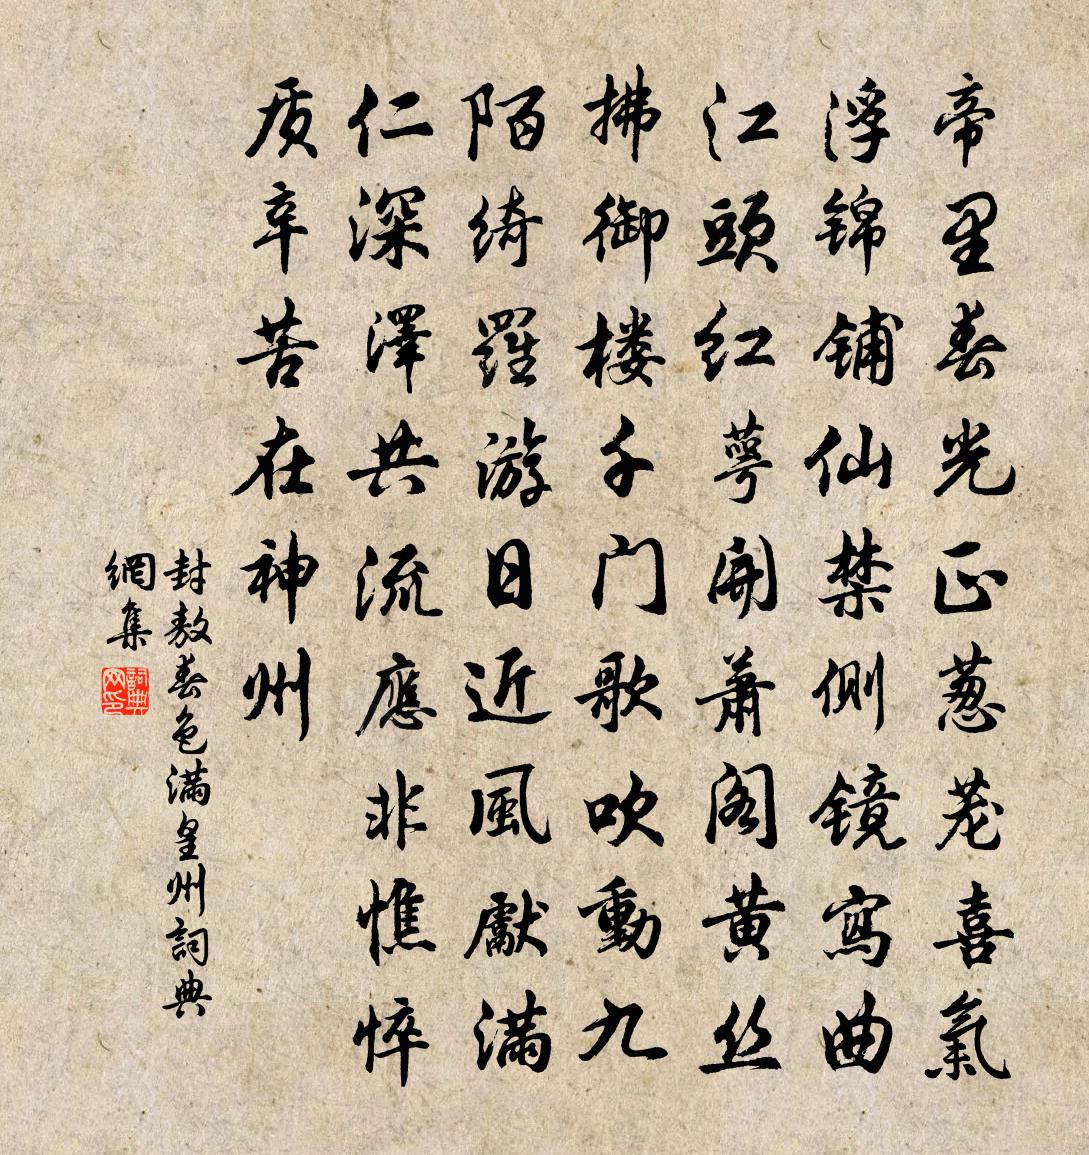 帝里春光正葱茏喜氣
浮锦铺仙禁侧镜寫曲
江頭红萼開萧阁黄丝
拂御楼千门歌吹動九
陌绮羅游日近風獻滿
仁深澤共流應非憔悴
质辛苦在神州
封敖春色滿皇州詞典
網集
詞典
网印